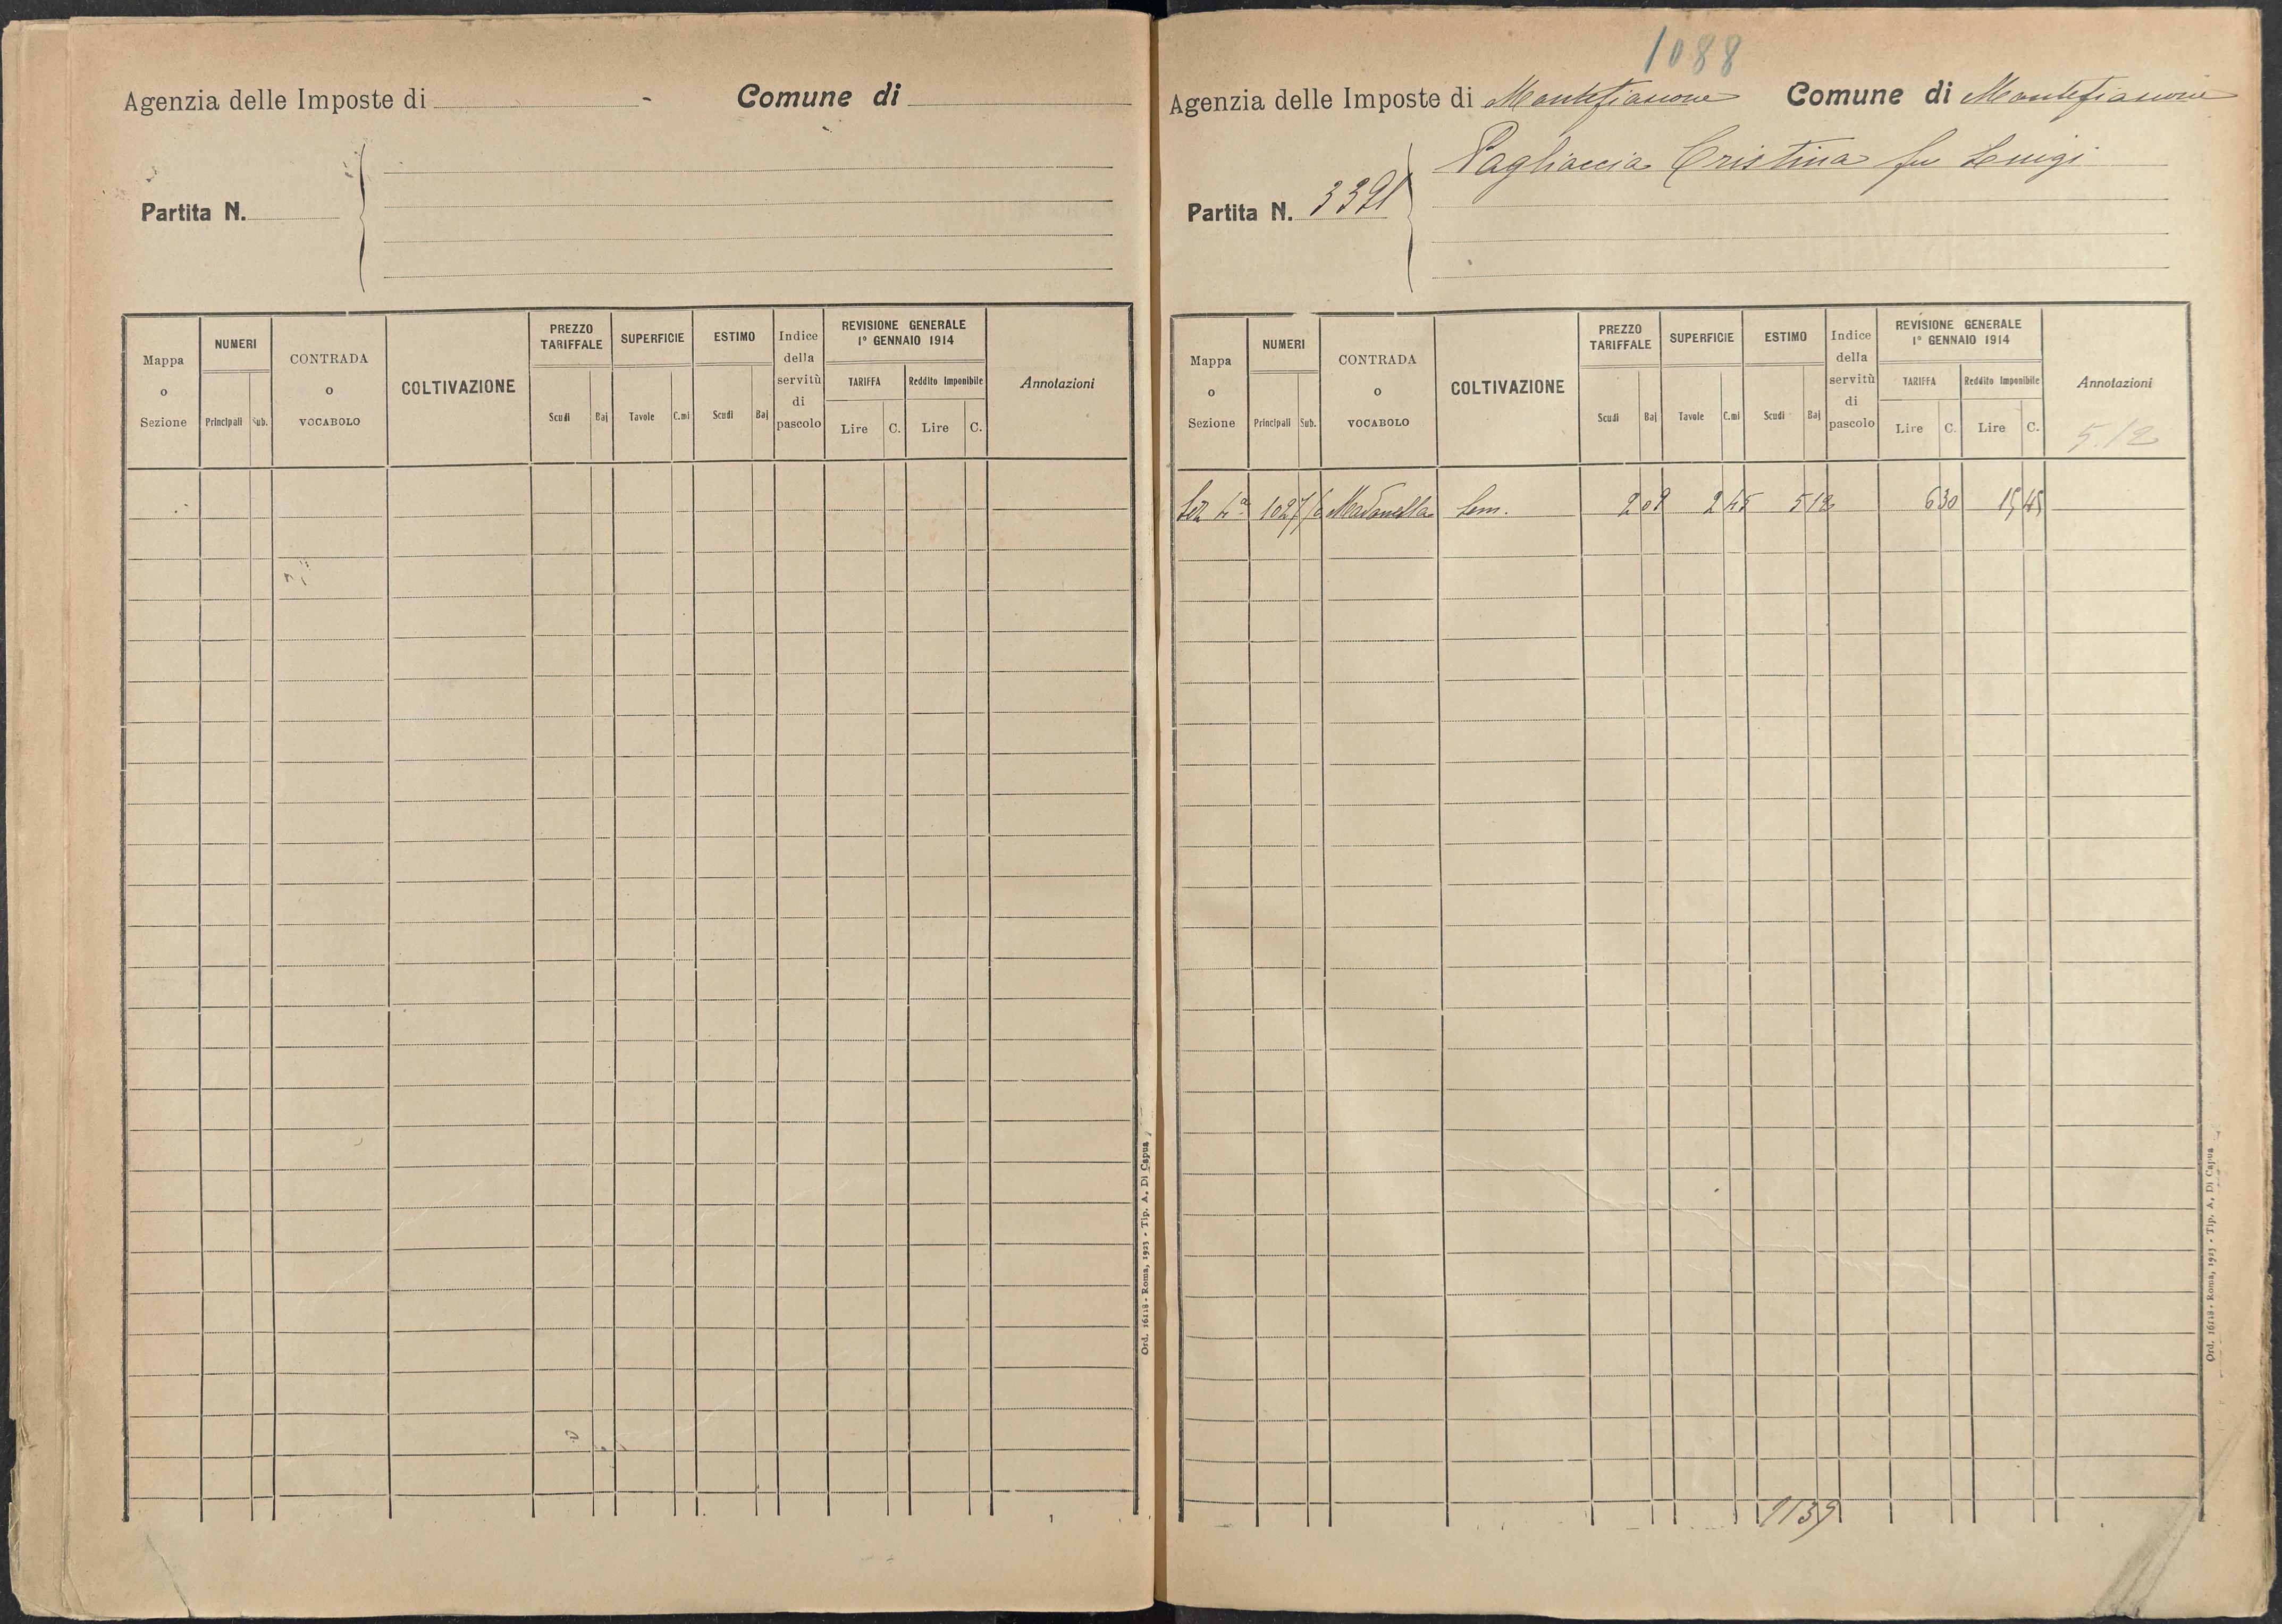 Agenzia delle Imposte di Comune di
Partita N.
Mappa o Sezione NUMERI Principali Sub. CONTRADA o VOCABOLO COLTIVAZIONE PREZZO TARIFFALE Scudi Baj SUPERFICIE Tavole C.mi ESTIMO Scudi Baj Indice della servitù di pascolo REVISIONE GENERALE 1° GENNAIO 1914 TARIFFA Lire C. Reddito Imponibile Lire C. Annotazioni
Ord. 16118 - Roma, 1923 - Tip. A. Di Capua
1088
Agenzia delle Imposte di Montefiascone Comune di Montefiascone
Pagliaccia Cristina fu Luigi
Partita N. 3391
Mappa o Sezione NUMERI Principali Sub. CONTRADA o VOCABOLO COLTIVAZIONE PREZZO TARIFFALE Scudi Baj SUPERFICIE Tavole C.mi ESTIMO Scudi Baj Indice della servitù di pascolo REVISIONE GENERALE 1° GENNAIO 1914 TARIFFA Lire C. Reddito Imponibile Lire C. Annotazioni
5.12
Sez 4ª 1027/6 Madonella Sem. 2 09 2 45 5 12 6 30 15 45
1139
Ord. 16118 - Roma, 1923 - Tip. A. Di Capua